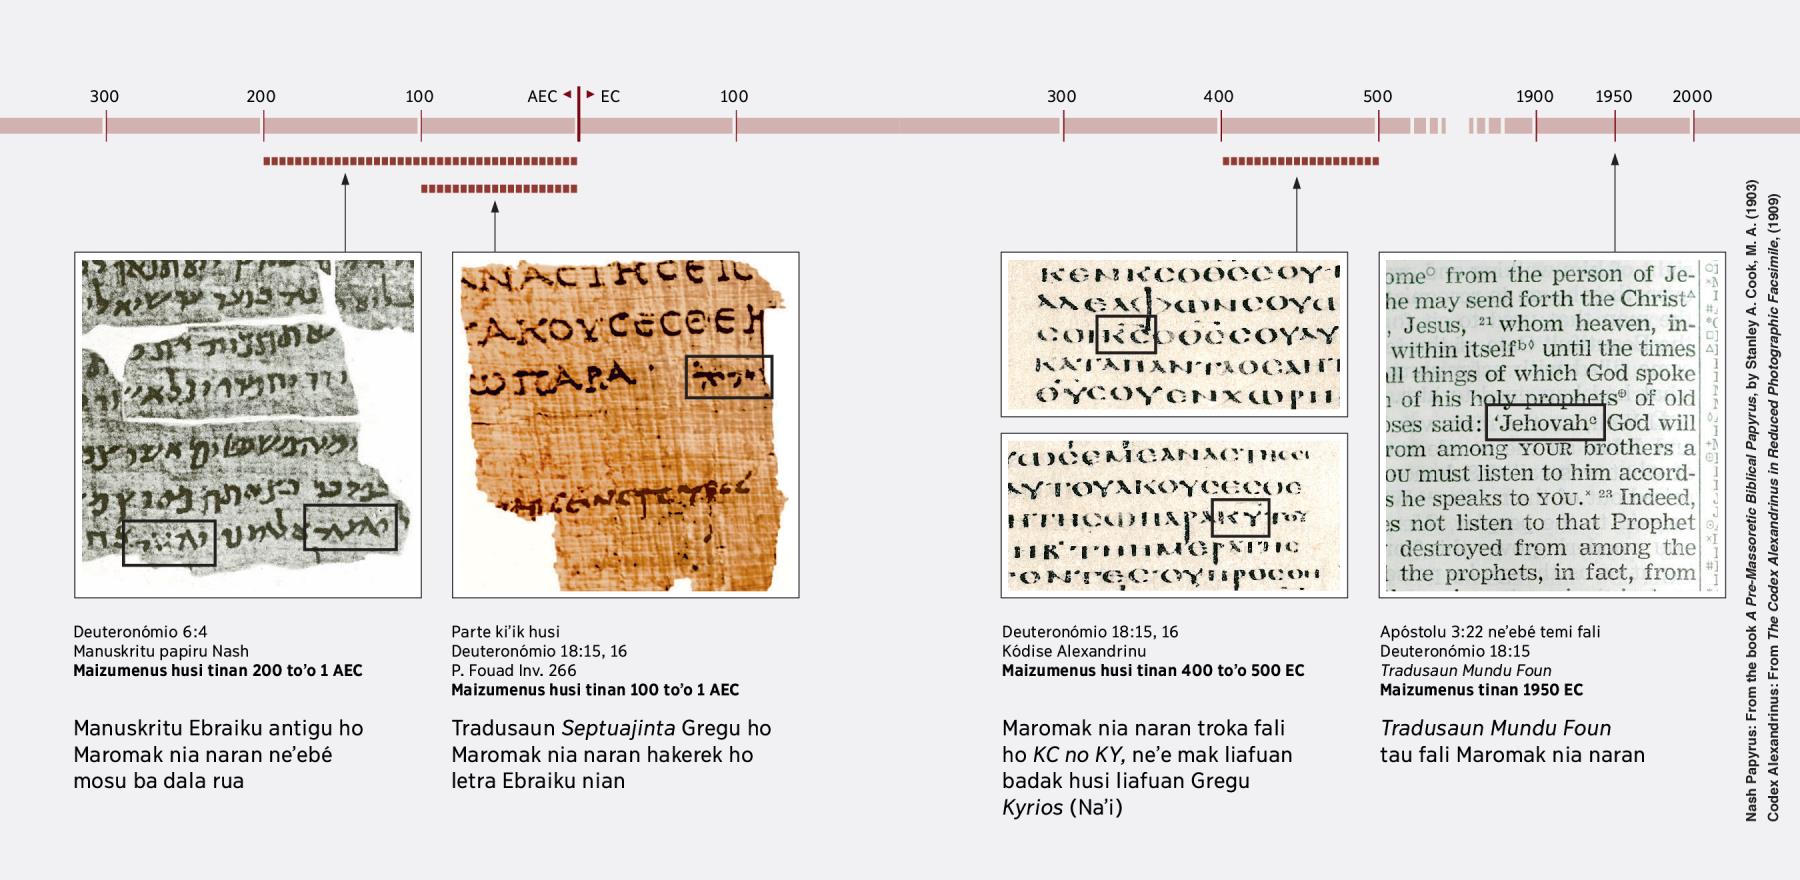 300 200 100 AEC EC 100 300 400 500 1900 1950 2000
ΑΚΟΥϹΕϹΘΕ
ΩΠΑΡΑ
ΚΕΝΚϹΟΘϹϹΟΥ
ϹΟΙΚϹΟΘϹϹΟΥΑΥ
ΚΑΤΑΠΑΝΤΑΟϹΑ
ΑΥΤΟΥΑΚΟΥϹΕϹΘΕ
ΠΑΡΑΚΥ
ome° from the person of Je-
he may send forth the Christ
Jesus, 21 whom heaven, in-
within itself until the times
all things of which God spoke
of his holy prophets of old
oses said: ‘Jehovah God will
rom among YOUR brothers a
ou must listen to him accord-
s he speaks to YOU.ˣ 23 Indeed,
es not listen to that Prophet
destroyed from among the
the prophets, in fact, from
Deuteronómio 6:4
Manuskritu papiru Nash
Maizumenus husi tinan 200 to’o 1 AEC
Manuskritu Ebraiku antigu ho
Maromak nia naran ne’ebé
mosu ba dala rua
Parte ki’ik husi
Deuteronómio 18:15, 16
P. Fouad Inv. 266
Maizumenus husi tinan 100 to’o 1 AEC
Tradusaun Septuajinta Gregu ho
Maromak nia naran hakerek ho
letra Ebraiku nian
Deuteronómio 18:15, 16
Kódise Alexandrinu
Maizumenus husi tinan 400 to’o 500 EC
Maromak nia naran troka fali
ho KC no KY, ne’e mak liafuan
badak husi liafuan Gregu
Kyrios (Na’i)
Apóstolu 3:22 ne’ebé temi fali
Deuteronómio 18:15
Tradusaun Mundu Foun
Maizumenus tinan 1950 EC
Tradusaun Mundu Foun
tau fali Maromak nia naran
Nash Papyrus: From the book A Pre-Massoretic Biblical Papyrus, by Stanley A. Cook, M. A. (1903)
Codex Alexandrinus: From The Codex Alexandrinus in Reduced Photographic Facsimile, (1909)